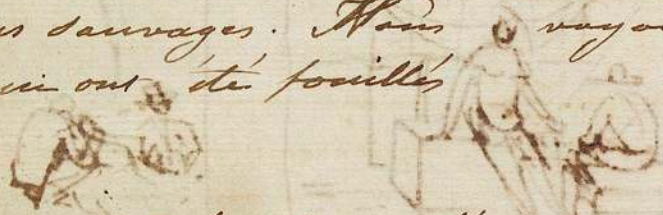 s sauvages. Nous voyo
ui ont été fouillés